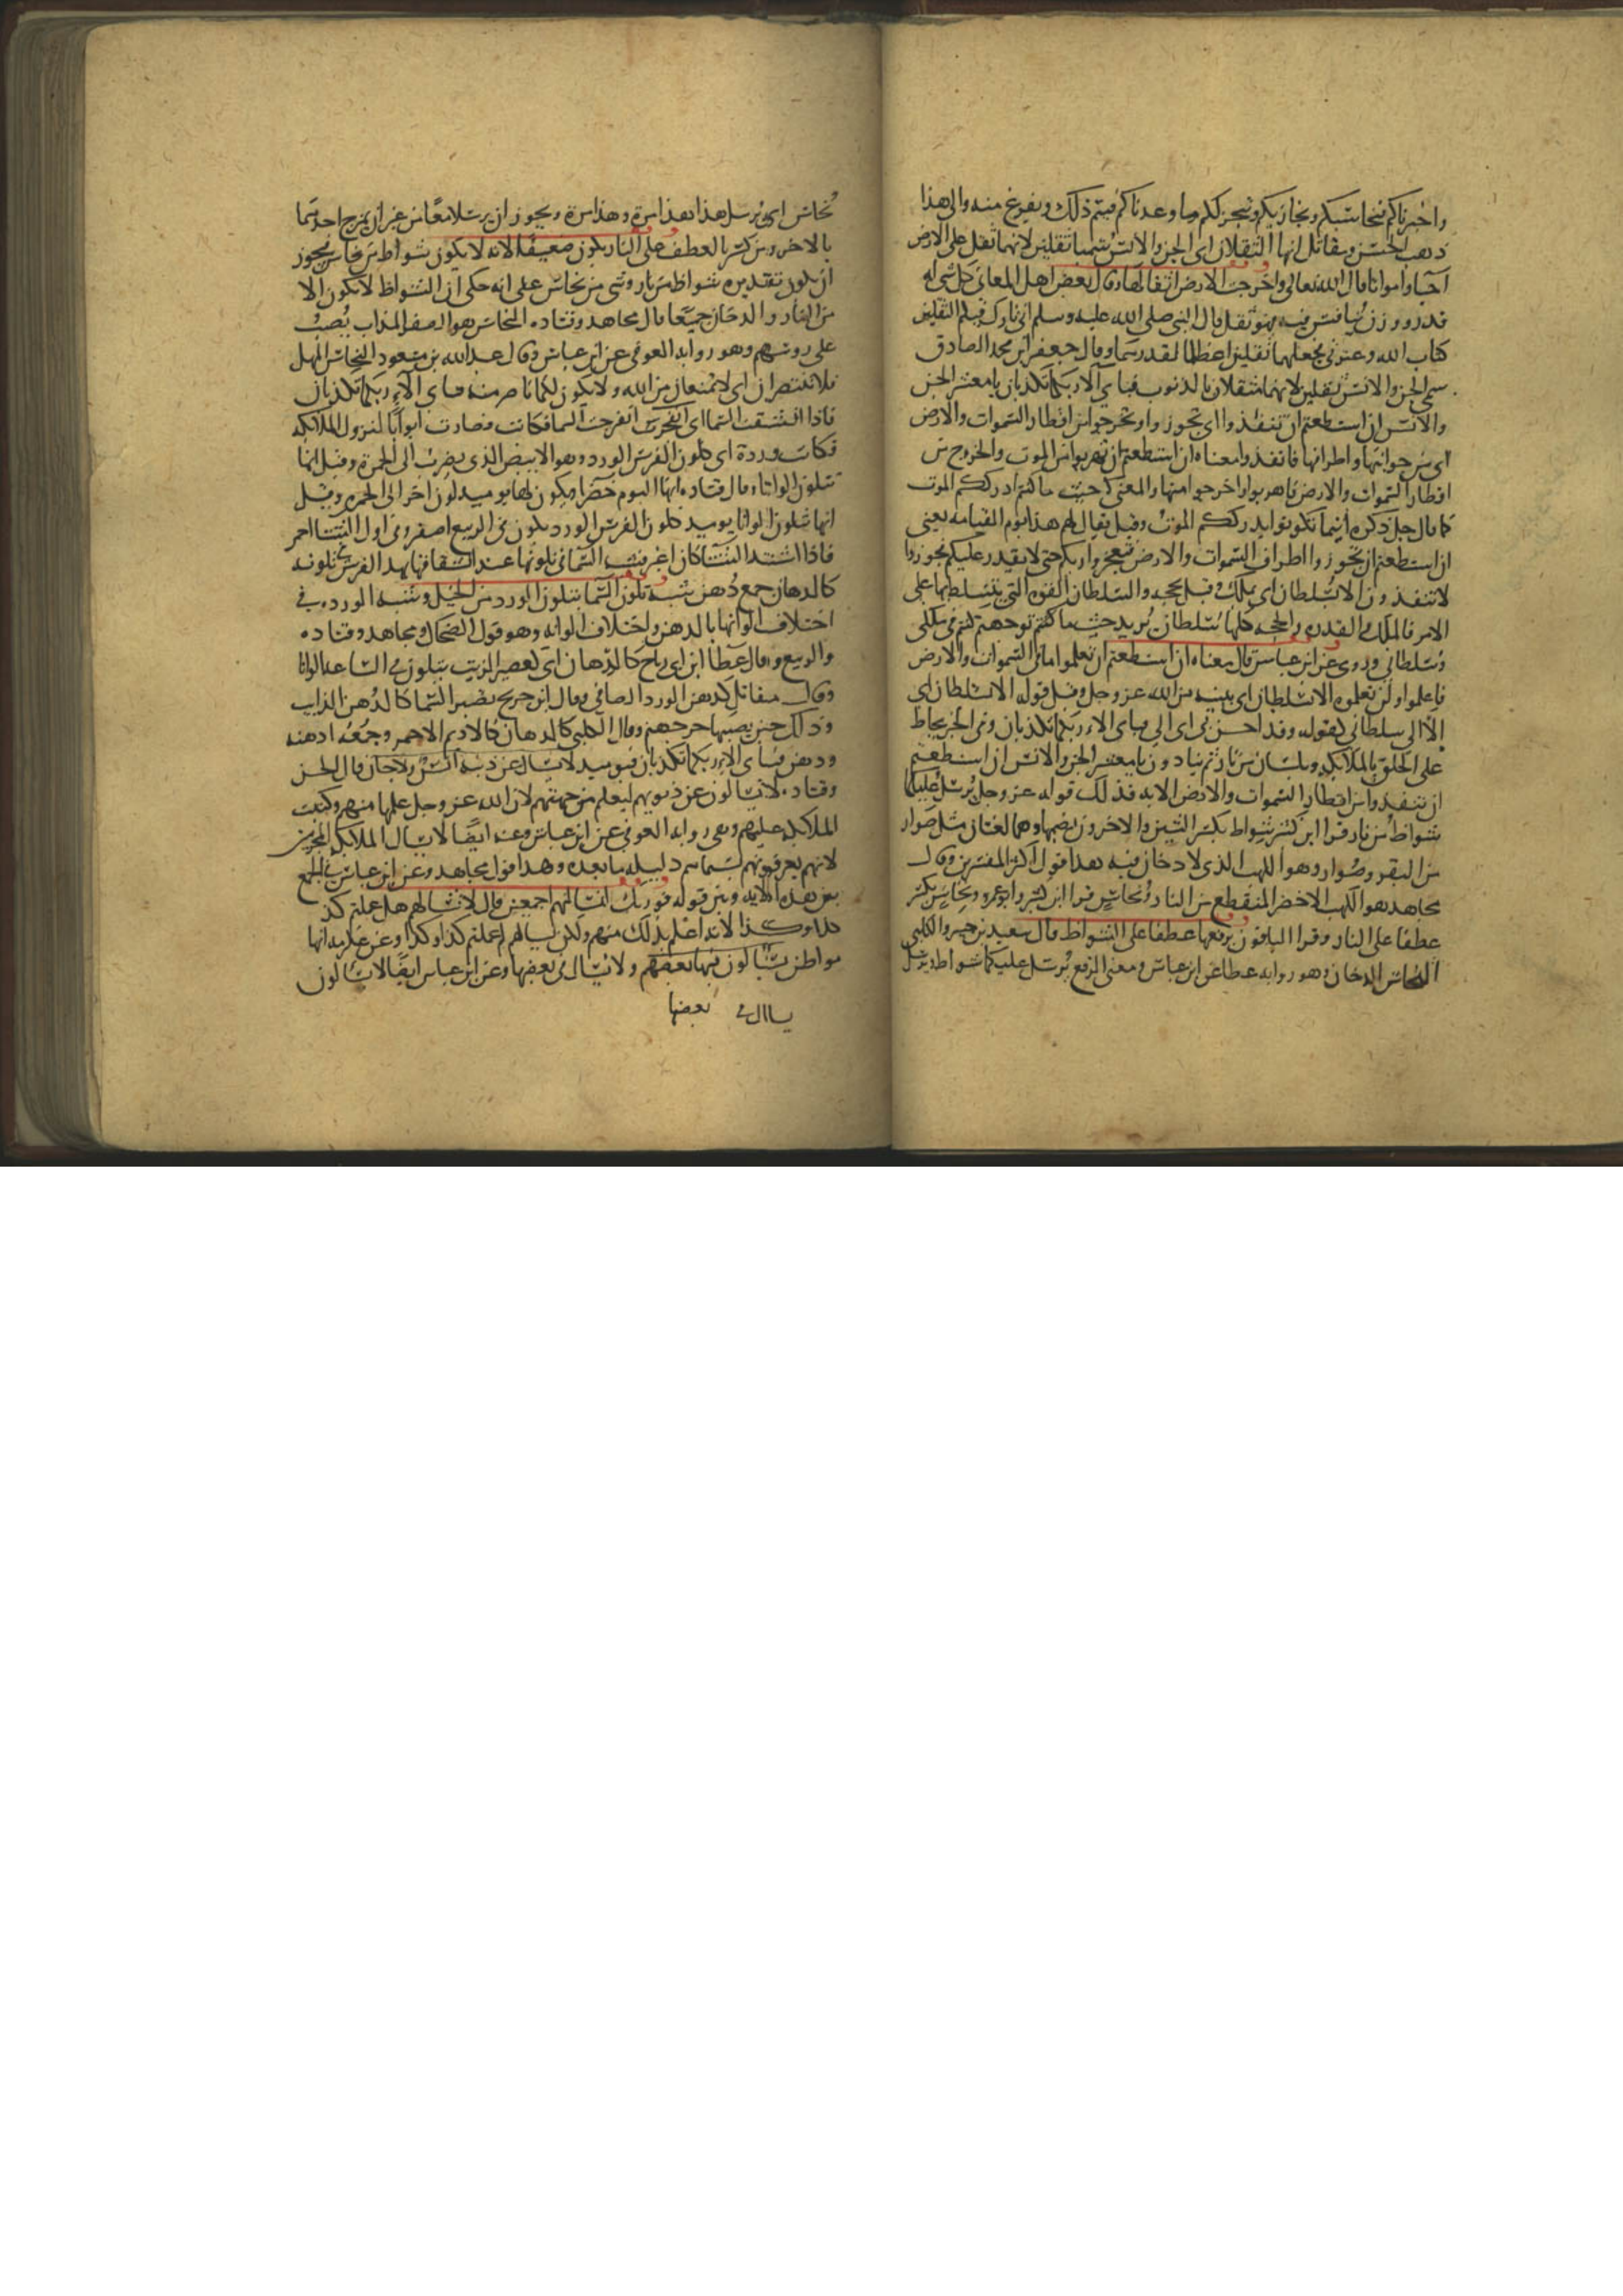 واخبرناكم فنحاسبكم ونجازيكم وننجز لكم ما وعدناكم فيتم ذلك ويفرغ منه والى هذا
ذهب الحسن ومقاتل ايها الثقلان اى الجن والانس سميا ثقلين لانهما ثقل على الارض
احيا وامواتا قال الله تعالى واخرجت الارض اثقالها وقال بعض اهل المعانى كل شى له
قدر ووزن ينافس فيه فهو ثقل قال النبى صلى الله عليه وسلم انى تارك فيكم الثقلين
كتاب الله وعترتى فجعلهما ثقلين اعظاما لقدرهما وقال جعفر ابن محمد الصادق
سمى الجن والانس ثقلين لانهما مثقلان بالذنوب فباى الا ربكما تكذبان يا معشر الجن
والانس ان استطعتم ان تنفذوا اى تجوزوا وتخرجوا من اقطار السموات والارض
اى من جوانبها واطرافها فانفذوا معناه ان استطعتم ان تهربوا من الموت والخروج من
اقطار السموات والارض فاهربوا واخرجوا منها والمعنى حيث ما كنتم ادرككم الموت
كما قال جل ذكره اينما تكونوا يدرككم الموت وقيل يقال لهم هذا يوم القيامه يعنى
ان استطعتم ان تجوزوا اطراف السموات والارض فتعجزوا ربكم حتى لا يقدر عليكم فجوزوا
لا تنفذون الا بسلطان اى بملك وقيل بحجه والسلطان القوه التى يتسلط بها على
الامر فالملك والقدره والحجه كلها سلطان يريد حيث ما كنتم توجهتم كنتم فى ملكى
وسلطانى وروى عن ابن عباس قال معناه ان استطعتم ان تعلموا ما فى السموات والارض
فاعلموا ولن تعلموه الا بسلطان اى ببينه من الله عز وجل وقيل قوله الا بسلطان اى
الا الى سلطانى كقوله وقد احسن بى اى الى فباى الاء ربكما تكذبان وفى الخبر يحاط
على الخلق بالملايكه وبلسان من نار ثم ينادون يا معشر الجن والانس ان استطعتم
ان تنفذوا من اقطار السموات والارض الايه فذلك قوله عز وجل يرسل عليكما
شواظ من نار قرا ابن كثير شواظ بكسر الشين والاخرون بضمها وهما لغتان مثل صوار
من البقر وصوار وهو اللهب الذى لا دخان فيه هذا قول اكثر المفسرين وقال
مجاهد هو اللهب الاخضر المنقطع من النار ونحاس قرا ابن كثير وابو عمرو ونحاس بكسر
عطفا على النار وقرا الباقون برفعها عطفا على الشواظ قال سعيد بن جبير والكلبى
النحاس الدخان وهو روايه عطا عن ابن عباس ومعنى الرفع يرسل عليكما شواظ ويرسل
نحاس اى يرسل هذا مرة وهذا مرة ويجوز ان يرسلا معا من غير ان يمزج احدهما
بالاخر ومن كسر بالعطف على النار يكون ضعيفا لانه لا يكون شواظ من نحاس فيجوز
ان يكون تقديره شواظ من نار وشى من نحاس على انه حكى ان الشواظ لا يكون الا
من النار والدخان جميعا قال مجاهد وقتاده النحاس هو الصفر المذاب يصب
على روسهم وهو روايه العوفى عن ابن عباس وقال عبد الله بن مسعود النحاس المهل
فلا تنتصران اى لا تمتنعان من الله ولا يكون لكما ناصر منه فباى الاء ربكما تكذبان
فاذا انشقت السما اى انفرجت السما فكانت فصارت ابوابا لنزول الملايكه
فكانت وردة اى كلون الفرس الورد وهو الابيض الذى يضرب الى الحمرة وقيل انها
تتلون الوانا وقال قتاده انها اليوم خضرا ويكون لها يوميد لون اخر الى الحمره وقيل
انها تتلون الوانا يوميد كلون الفرس الورد يكون فى الربيع اصفر وفى اول الشتا احمر
فاذا اشتد الشتا كان اغبر فشبه السما فى تلونها عند انشقاقها بهذا الفرس فى تلونه
كالدهان جمع دهن شبه تلون السما بتلون الورد من الخيل وشبه الورده فى
اختلاف الوانها بالدهن واختلاف الوانه وهو قول الضحاك ومجاهد وقتاده
والربيع وقال عطا ابن ابى رباح كالدهان اى كعصير الزيت يتلون فى الساعه الوانا
وقال مقاتل كدهن الورد الصافى وقال ابن جريج يصير السما كالدهن الذايب
وذلك حين يصيبها حر جهنم وقال الكلبى كالدهان كالاديم الاحمر وجمعه ادهنه
ودهن فباى الاء ربكما تكذبان فيوميد لا يسال عن ذنبه انس ولا جان قال الحسن
وقتاده لا يسالون عن ذنوبهم ليعلم من جهتهم لان الله عز وجل علمها منهم وكتبت
الملايكه عليهم وهى روايه العوفى عن ابن عباس وعنه ايضا لا يسال الملايكه المجرمين
لانهم يعرفونهم بسيماهم دليله ما بعده وهذا قول مجاهد وعن ابن عباس فى الجمع
بين هذه الايه وبين قوله فوربك لنسالنهم اجمعين قال لا يسالهم هل عملتم كذ
وكذا لانه اعلم بذلك منهم ولكن يسالهم لم عملتم كذا وكذا وعن عكرمه انها
مواطن يسالون فيها بعضهم ولا يسال فى بعضها وعن ابن عباس ايضا لا يسالون
يسال فى بعضها